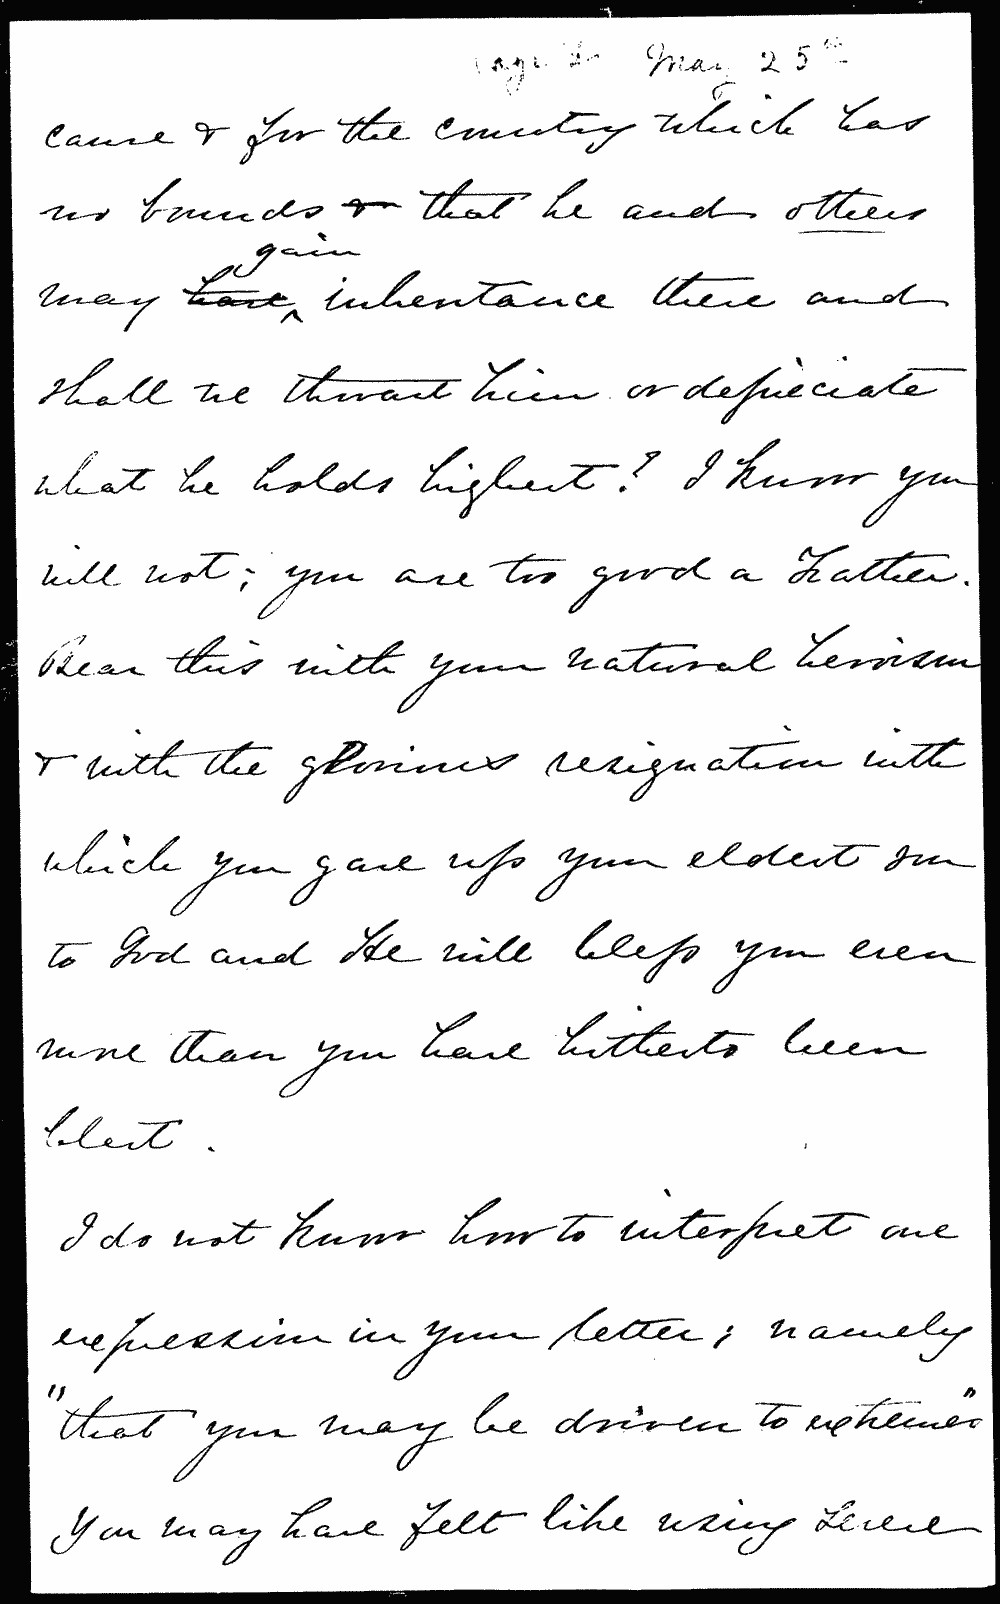 Page 2. May 25th
cause & for the country which has
no bounds & that he and others
gain
may have ^ inheritance there and
shall we thwart him or depreciate
what he holds highest? I know you
will not; you are too good a Father.
Bear this with your natural heroism
& with the glorious resignation with
which you gave up your eldest son
to God and He will bless you even
more than you have hitherto been
blest.
I do not know how to interpret one
expression in your letter; namely
"that you may be driven to extremes"
You may have felt like using severe